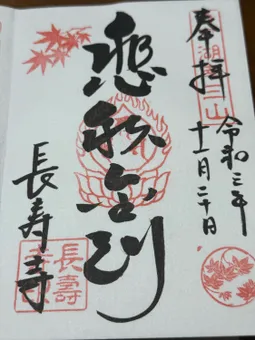 奉拝
湖南三山
令和三年
十一月二十日
秋
長寿寺
長壽
寺印